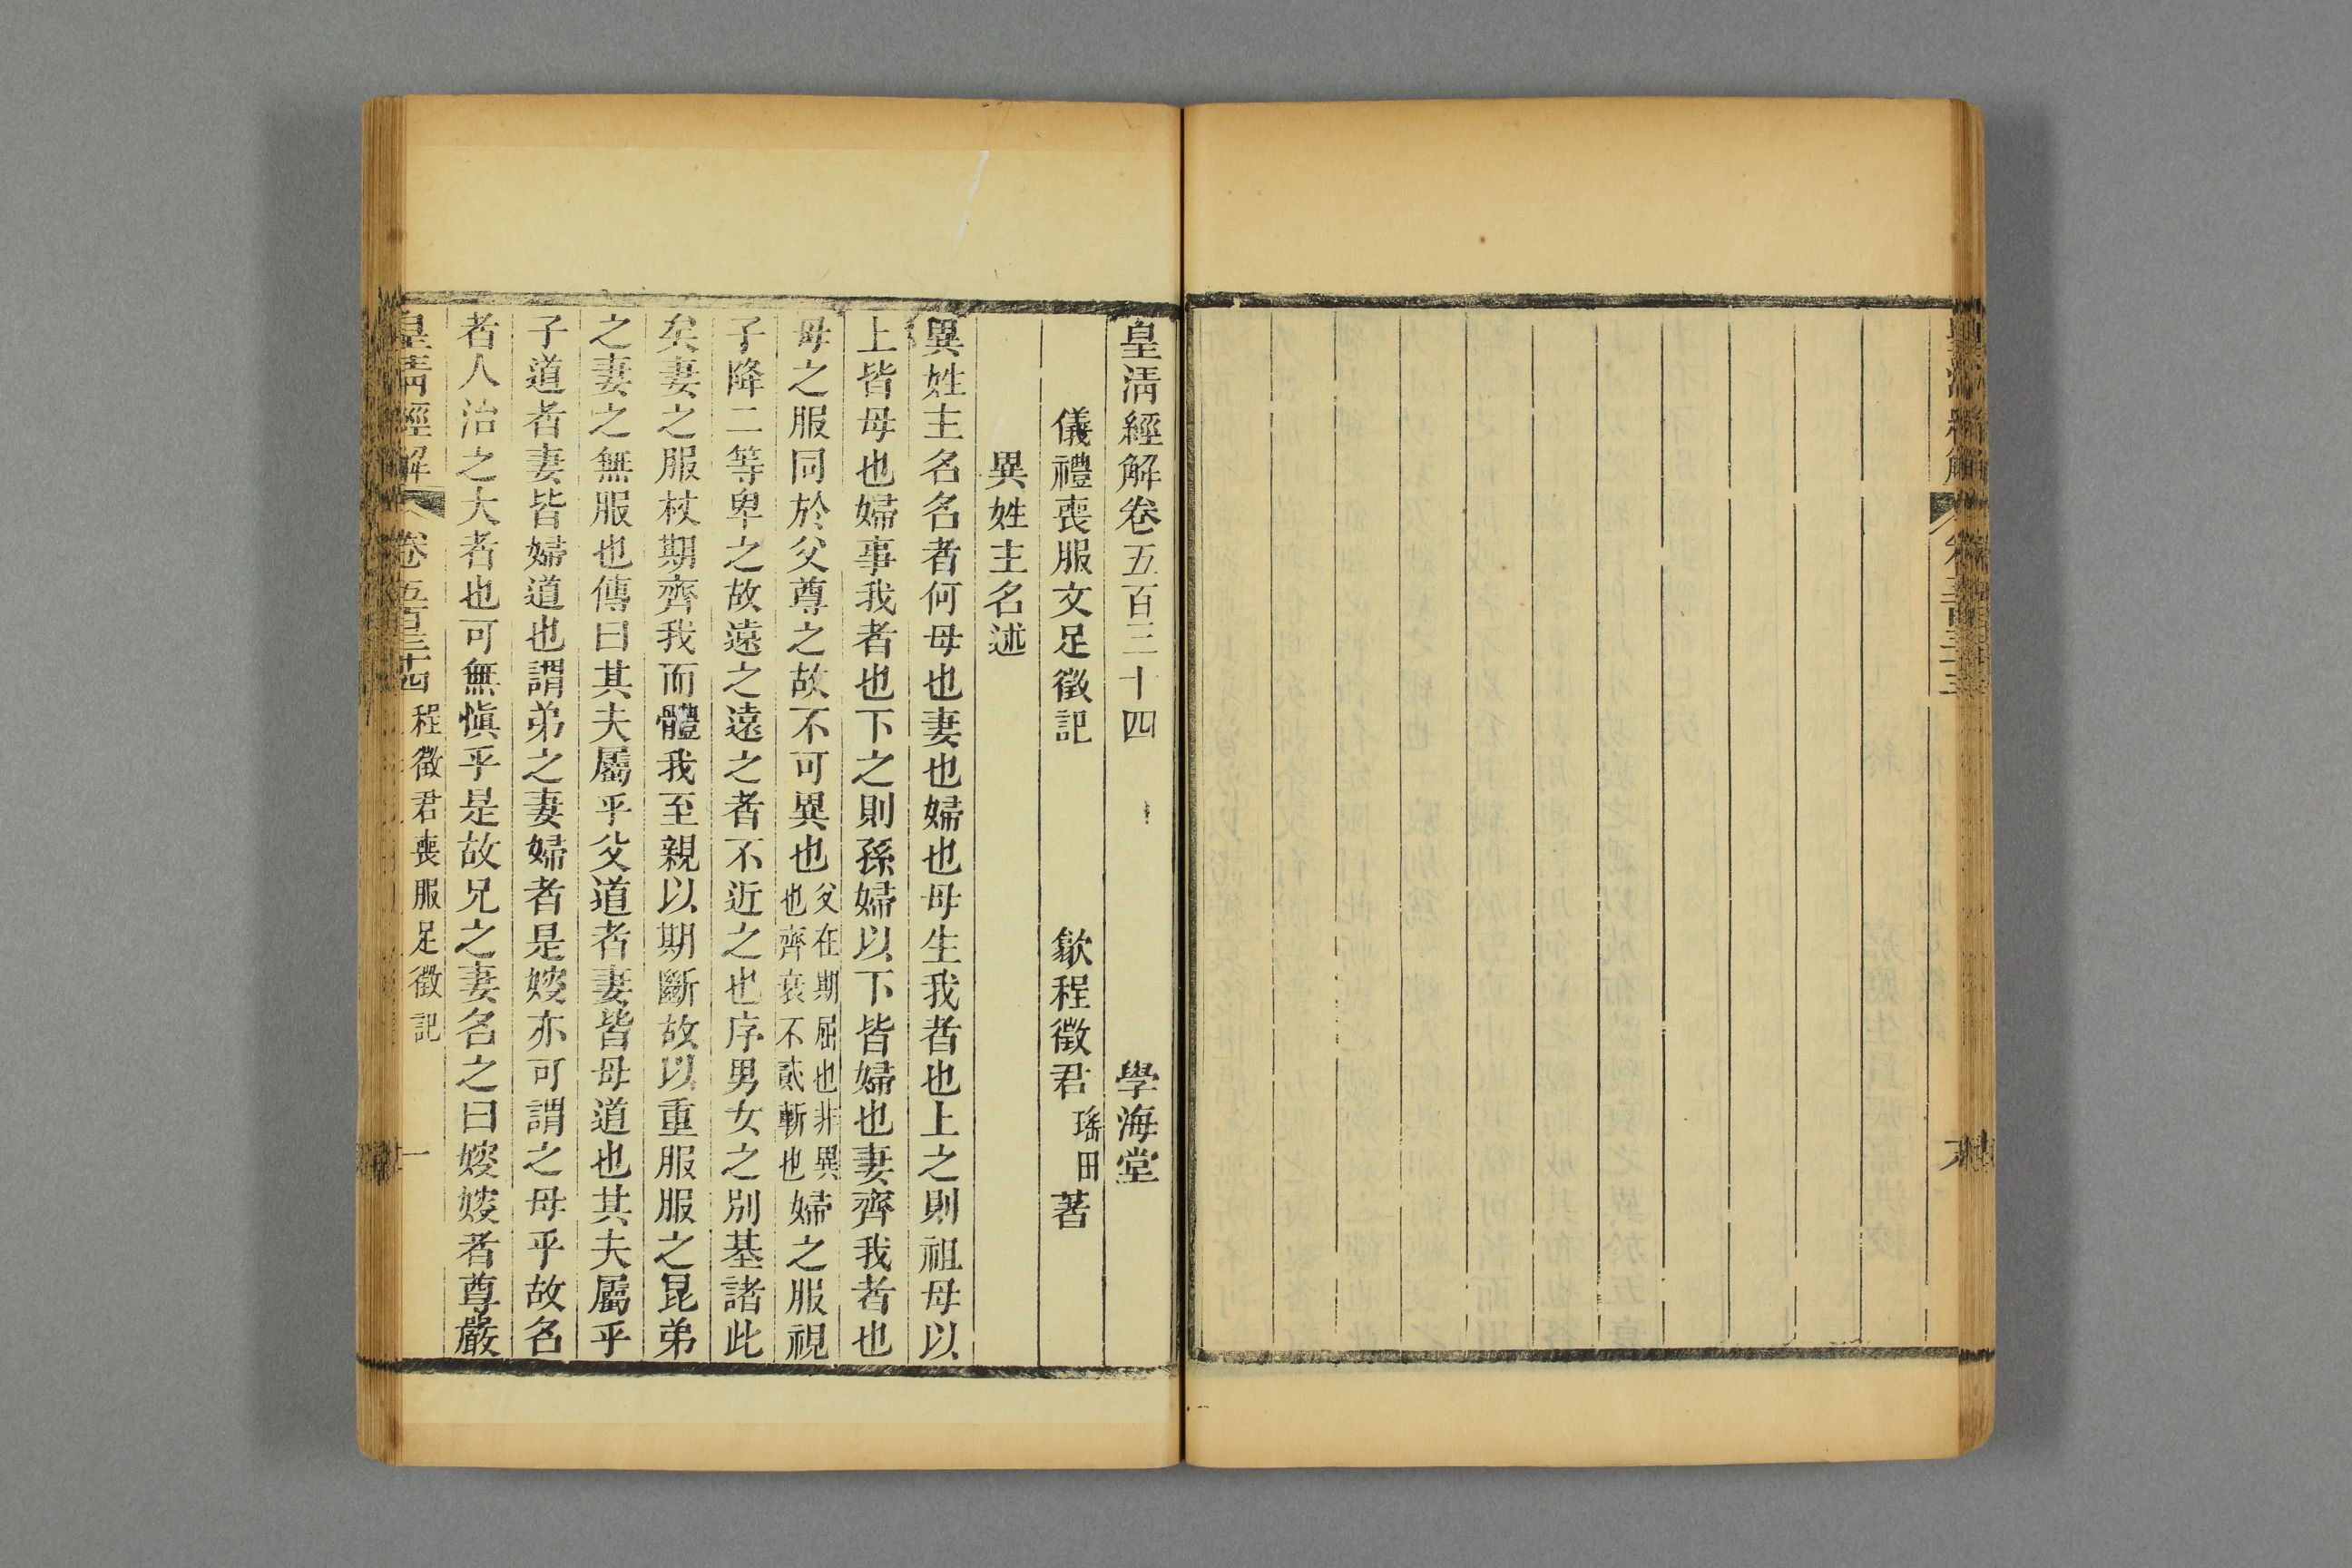 皇清經解卷五百三十四　學海堂
儀禮喪服文足徵記　歙程徵君瑤田著
異姓主名述
異姓主名名者何母也妻也婦也母生我者也上之則祖母以
上皆母也婦事我者也下之則孫婦以下皆婦也妻齊我者也
母之服同於父尊之故不可異也父在期屈也非異也齊衰不貳斬也婦之服視
子降二等卑之故遠之遠之者不近之也序男女之別基諸此
矣妻之服杖期齊我而體我至親以期斷故以重服服之昆弟
之妻之無服也傳曰其夫屬乎父道者妻皆母道也其夫屬乎
子道者妻皆婦道也謂弟之妻婦者是嫂亦可謂之母乎故名
者人治之大者也可無愼乎是故兄之妻名之曰嫂嫂者尊嚴
皇清經解　卷五百三十四　程徵君喪服足徵記　一